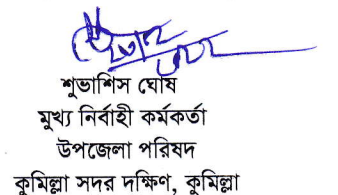 শুভাশিস ঘোষ
মুখ্য নির্বাহী কর্মকর্তা
উপজেলা পরিষদ
কুমিল্লা সদর দক্ষিণ, কুমিল্লা